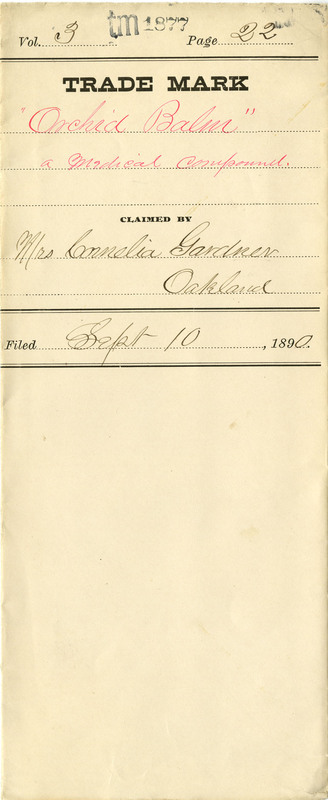 Vol. 3 tm 1877 Page 22
TRADE MARK
"Orchid Balm"
a Medical Compound.
CLAIMED BY
Mrs Cornelia Gardner
Oakland
Filed Sept 10, 1890.